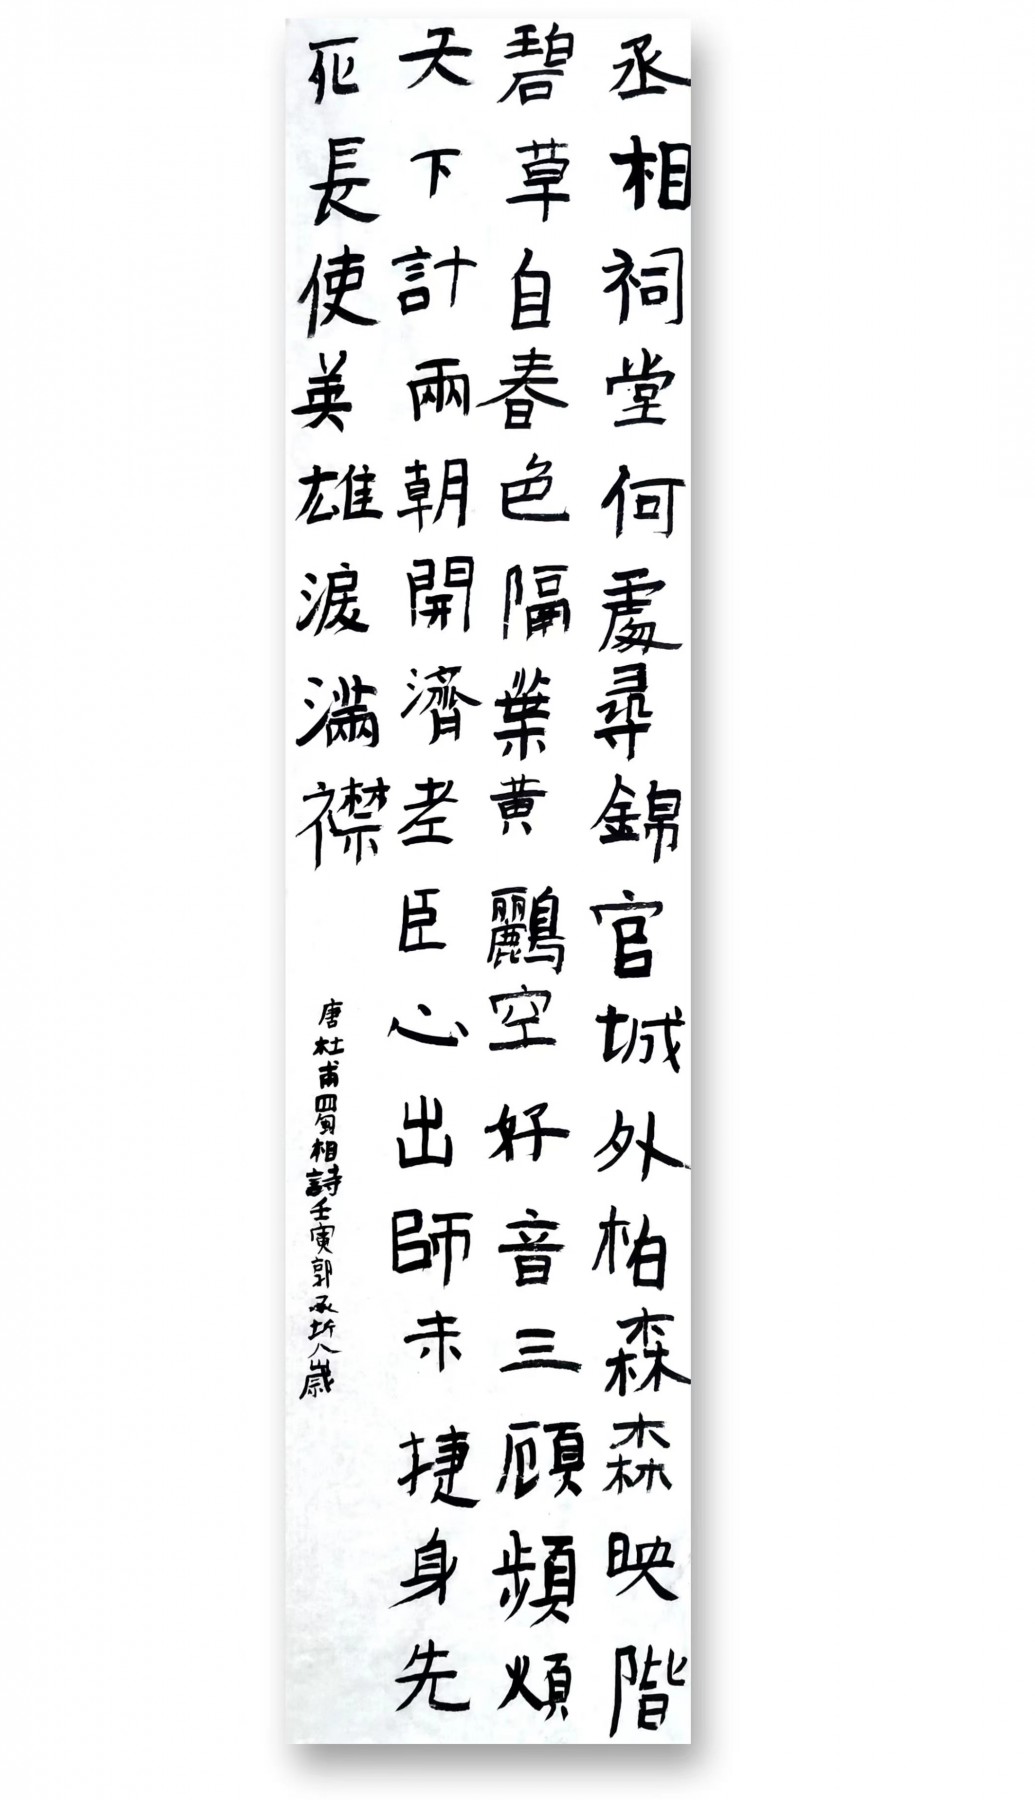 丞相祠堂何處尋錦官城外柏森森映階
碧草自春色隔葉黄鸝空好音三顧頻煩
天下計兩朝開濟老臣心出師未捷身先
死長使英雄淚滿襟
唐杜甫蜀相詩壬寅郭承圻八歲